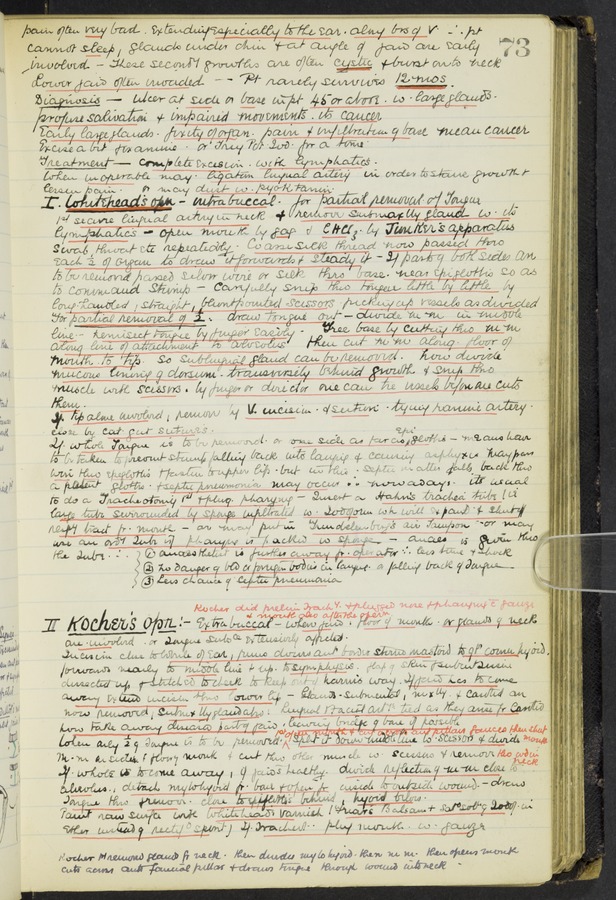 73
pain often very bad. Extending especially to the ear. along brs of V ∴ pt
cannot sleep, glands under chin & at angle of jaw are early
involved - These second^y growths are often cystic & burst onto neck
Lower jaw often invaded -- Pt rarely survives 12 mos.
Diagnosis - Ulcer at side or base in pt 45 or above. w. large glands.
profuse salivation & impaired movements. its cancer
Early large glands. fixity of organ. pain & infiltration of base mean cancer
Excise a bit & examine. or Try Pot Iod. for a time
Treatment - complete excision. with lymphatics.
When inoperable may. ligation lingual artery in order to starve growth &
lessen pain. or may dust w.
I. Whitehead's opn - intrabuccal. for partial removal of Tongue
1st secure lingual artery in neck & remove submaxlly gland w. its
lymphatics - open mouth by gag & CHCl3 by Junker's apparatus
Swab throat etc repeatedly. Coarse silk thread now passed thro
each ½ of organ to draw it forwards & steady it - If part of both sides are
to be removed passed silver wire or silk thro' base. near epiglottis so as
to command stump - carefully snip thro tongue little by little by
long handled, straight, blunt pointed scissors picking up vessels as divided
For partial removal of ½: draw tongue out - divide m.m in middle
line - hemisect tongue by finger easily. Free base by cutting thro m.m
along line of attachment to alveolus. Then cut m.m along floor of
mouth to tip so sublingual gland can be removed. Now divide
mucous lining of dorsum transversely behind growth & snip thro
muscle with scissors. by finger or director one can tie vessels before one cuts
them.
If tip alone involved, remove by V. incision & suture. tying ranine artery.
close by cat gut sutures.
If whole Tongue is to be removed. or one side as far as epiglottis - means have
to be taken to prevent stump falling back into larynx & causing asphyxia
wire thro epiglottis & fasten to upper lip. but in this. septic matter falls back thro
glottis. & septic pneumonia may occur ∴ nowadays. its usual
to do a Tracheotomy 1st & plug pharynx - Insert a Hahn's trachea tube ie
large tube surrounded by sponge infiltrated w. Iodoform wh will expand & shut off
resp^y tract fr. mouth - or may put in Trendelenburg's air Tampon - or may
use an ord^y Tube if pharynx is packed w sponge - anaes is given thro
the tube ∴ ① anaesthetist is further away fr operator ∴ less time & shock
② No danger of bld or foreign bodies in larynx. or falling back of Tongue
③ Less chance of Septic pneumonia
Kocher did prelim Trachy & plugged nose & pharynx c gauze
& mouth also after the opern
II Kocher's opn: - Extra buccal - when jaw, floor of mouth. or glands of neck
are involved. or Tongue extensively affected.
Incision close to lobule of ear, runs down ant border sterno mastoid to gt cornu hyoid.
forwards nearly to middle line & up. to symphysis. Flap of skin & subcut tissue
dissected up & stitched to cheek to keep out of harm's way. If jaw has to come
away extend incision thro lower lip - Glands. submental, maxlly & carotid are
now removed, submaxlly gland also. Lingual & facial arts tied as they arise fr Carotid
Now take away diseased part of jaw. leaving bridge of bone if possible
When only ½ of Tongue is to be removed. split it down middle line w scissors & divide
floor of mouth & cut across ant pillars fauces then chat
m.m in
whole is to come away, & jaw is healthy. divide reflection of m.m close to
alveolus, detach mylohyoid fr bone & open fr inside to outside wound - draw
tongue thro & remove. close to epiglottis behind & hyoid below.
Paint raw surface with Whitehead's varnish
Ether instead of rectif^d spirit, If Trach^y. plug mouth w. gauze
Kocher removed glands fr neck. then divides mylohyoid. then m.m. then opens mouth
cuts across ant faucial pillar & draws tongue through wound into neck